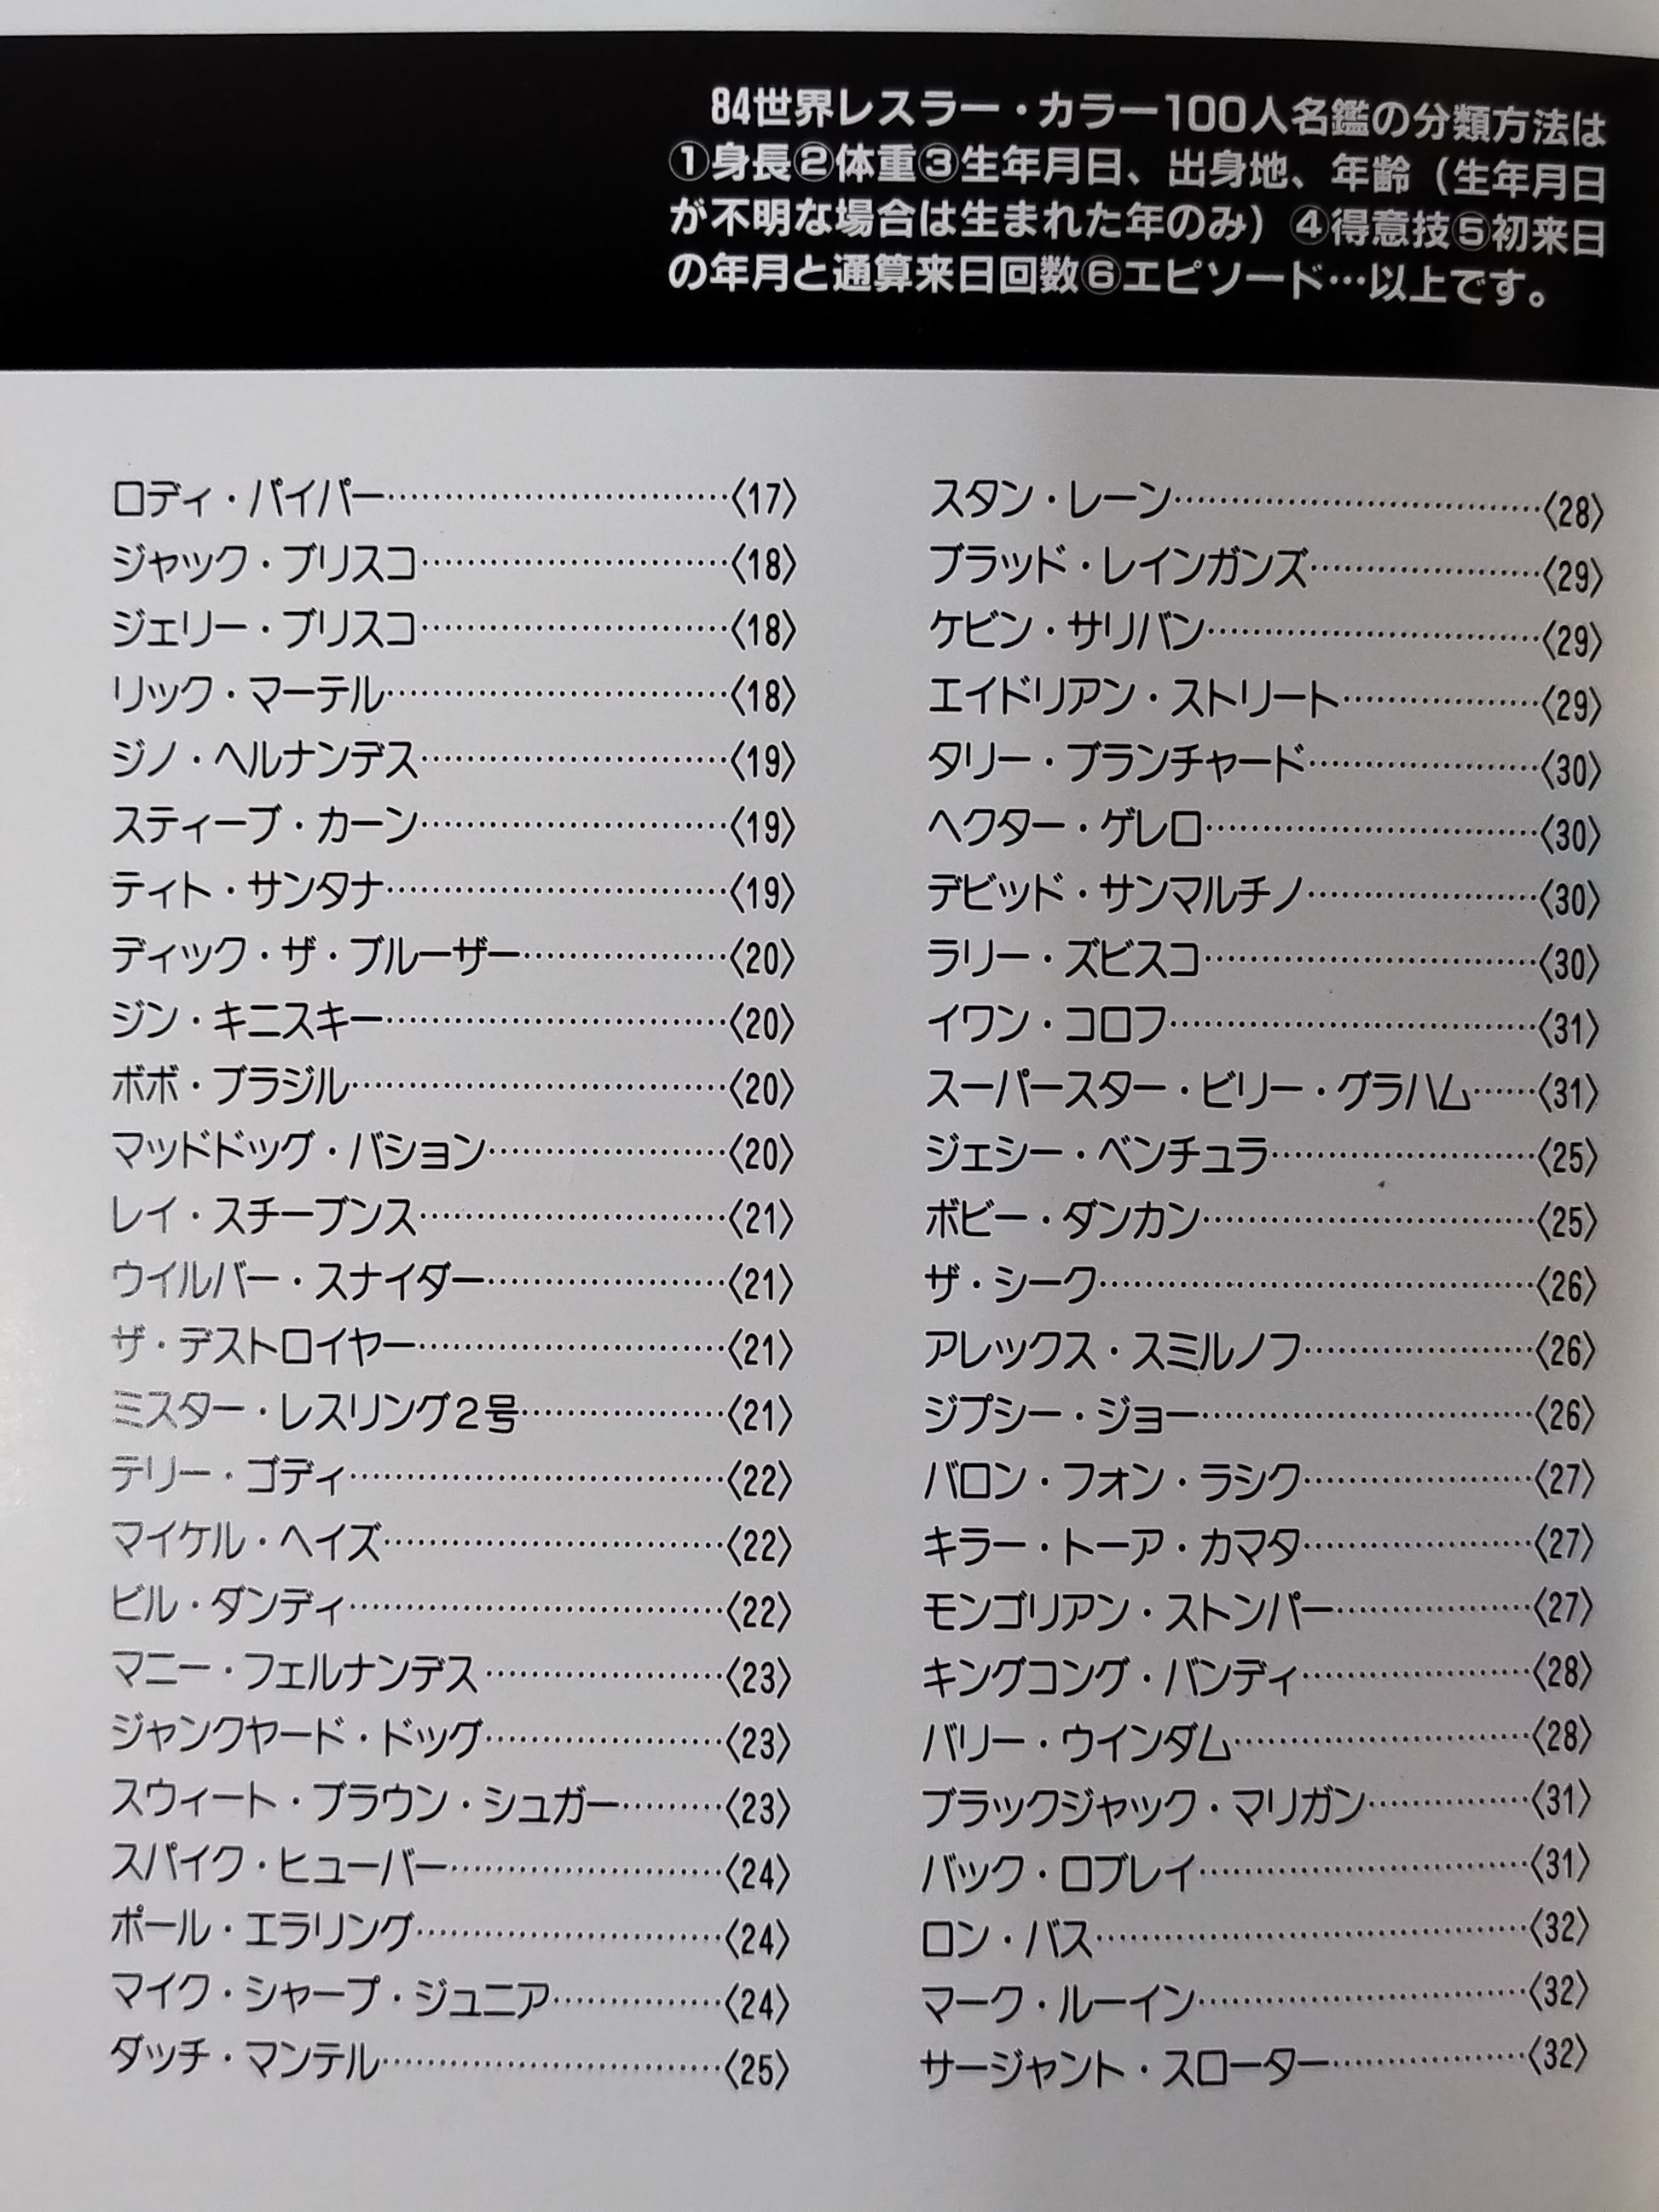 84世界レスラー・カラー100人名鑑の分類方法は
①身長②体重③生年月日、出身地、年齢（生年月日
が不明な場合は生まれた年のみ）④得意技⑤初来日
の年月と通算来日回数⑥エピソード…以上です。
ロディ・パイパー…………………………〈17〉
ジャック・ブリスコ………………………〈18〉
ジェリー・ブリスコ………………………〈18〉
リック・マーテル…………………………〈18〉
ジノ・ヘルナンデス………………………〈19〉
スティーブ・カーン………………………〈19〉
ティト・サンタナ…………………………〈19〉
ディック・ザ・ブルーザー………………〈20〉
ジン・キニスキー…………………………〈20〉
ボボ・ブラジル……………………………〈20〉
マッドドッグ・バション…………………〈20〉
レイ・スチーブンス………………………〈21〉
ウイルバー・スナイダー…………………〈21〉
ザ・デストロイヤー………………………〈21〉
ミスター・レスリング2号………………〈21〉
テリー・ゴディ……………………………〈22〉
マイケル・ヘイズ…………………………〈22〉
ビル・ダンディ……………………………〈22〉
マニー・フェルナンデス…………………〈23〉
ジャンクヤード・ドッグ…………………〈23〉
スウィート・ブラウン・シュガー………〈23〉
スパイク・ヒューバー……………………〈24〉
ポール・エラリング………………………〈24〉
マイク・シャープ・ジュニア……………〈24〉
ダッチ・マンテル…………………………〈25〉
スタン・レーン……………………………〈28〉
ブラッド・レインガンズ…………………〈29〉
ケビン・サリバン…………………………〈29〉
エイドリアン・ストリート………………〈29〉
タリー・ブランチャード…………………〈30〉
ヘクター・ゲレロ…………………………〈30〉
デビッド・サンマルチノ…………………〈30〉
ラリー・ズビスコ…………………………〈30〉
イワン・コロフ……………………………〈31〉
スーパースター・ビリー・グラハム……〈31〉
ジェシー・ベンチュラ……………………〈25〉
ボビー・ダンカン…………………………〈25〉
ザ・シーク…………………………………〈26〉
アレックス・スミルノフ…………………〈26〉
ジプシー・ジョー…………………………〈26〉
バロン・フォン・ラシク…………………〈27〉
キラー・トーア・カマタ…………………〈27〉
モンゴリアン・ストンパー………………〈27〉
キングコング・バンディ…………………〈28〉
バリー・ウインダム………………………〈28〉
ブラックジャック・マリガン……………〈31〉
バック・ロブレイ…………………………〈31〉
ロン・バス…………………………………〈32〉
マーク・ルーイン…………………………〈32〉
サージャント・スローター………………〈32〉